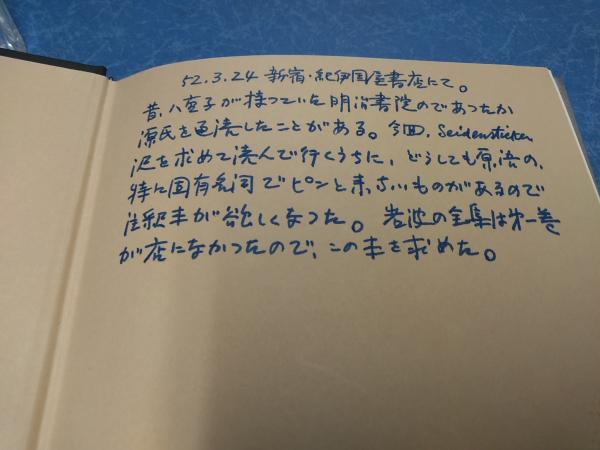 52.3.24 新宿・紀伊国屋書店にて。
昔、八重子が持っていた明治書院のであったか
源氏を通読したことがある。今回、Seidensticker
訳を求めて読んで行くうちに、どうしても原語の、
特に固有名詞でピンと来ないものがあるので
注釈本が欲しくなった。岩波の全集は第一巻
が店になかったので、この本を求めた。